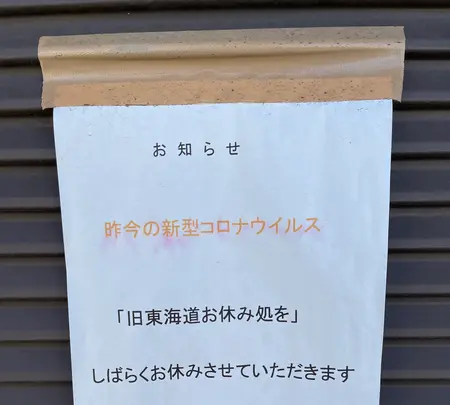 お知らせ
昨今の新型コロナウイルス
「旧東海道お休み処を」
しばらくお休みさせていただきます